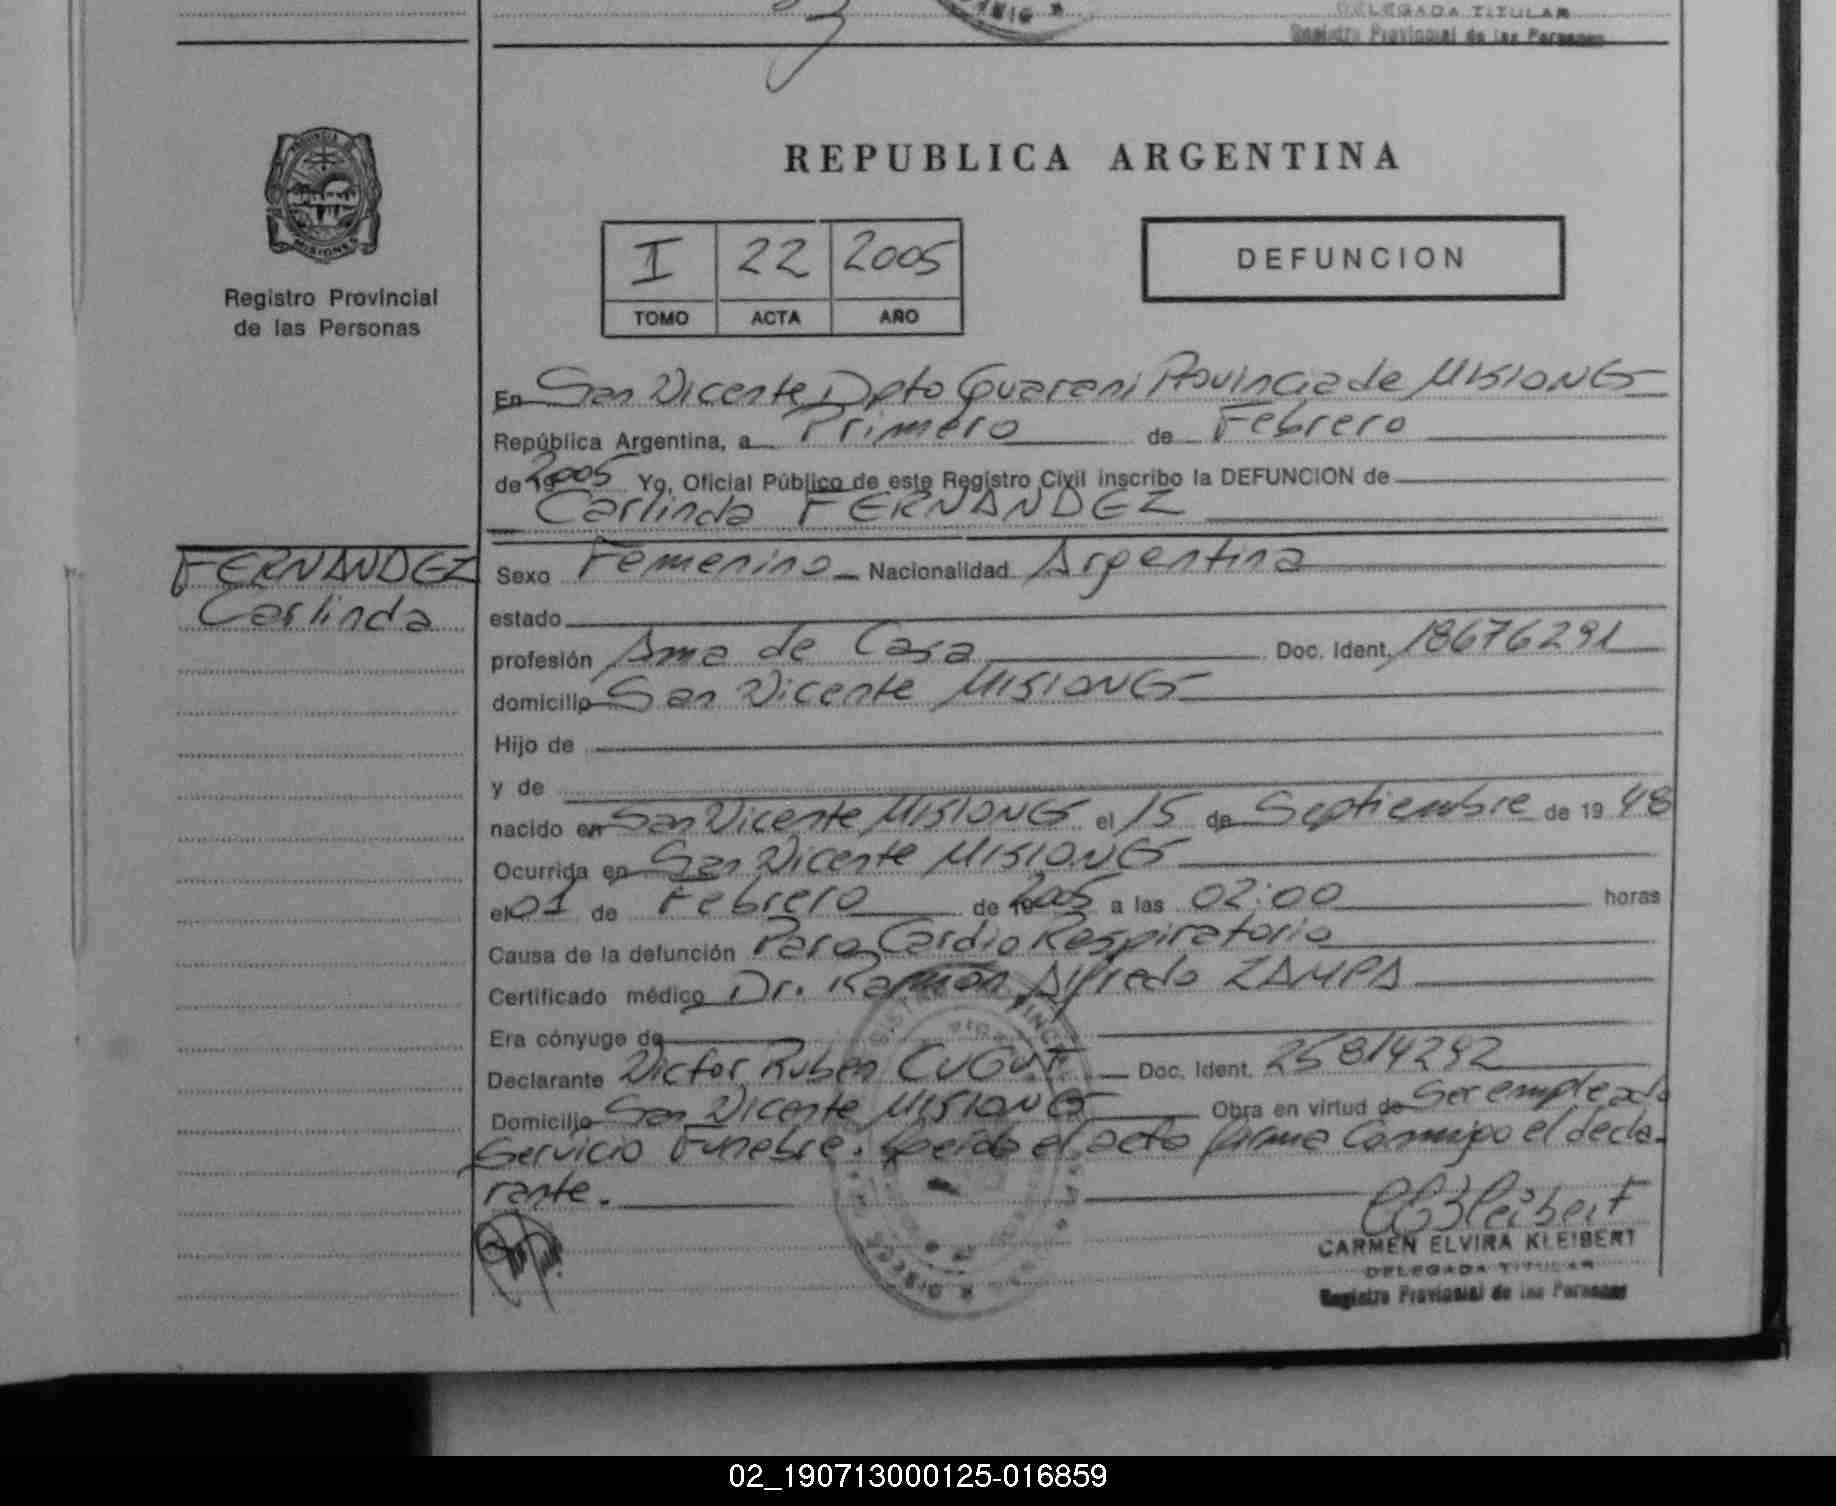 DELEGADA TITULAR
Registro Provincial de las Personas
PROVINCIA
MISIONES
Registro Provincial
de las Personas
REPUBLICA ARGENTINA
I 22 2005
TOMO ACTA AÑO
DEFUNCION
En San Vicente Dpto Guarani Provincia de MISIONES
República Argentina, a Primero de Febrero
de 19 2005 Yo, Oficial Público de este Registro Civil inscribo la DEFUNCION de
Carlinda FERNANDEZ
FERNANDEZ
Carlinda
Sexo Femenino Nacionalidad Argentina
estado
profesión Ama de Casa Doc. Ident. 18676291
domicilio San Vicente MISIONES
Hijo de
y de
nacido en San Vicente MISIONES el 15 de Septiembre de 19 48
Ocurrida en San Vicente MISIONES
el 01 de Febrero de 19 2005 a las 02:00 horas
Causa de la defunción Paro Cardio Respiratorio
Certificado médico Dr. Ramón Alfredo ZAMPA
Era cónyuge de
Declarante Victor Ruben Doc. Ident. 25814292
Domicilio San Vicente MISIONES Obra en virtud de Ser empleado
Servicio Funebre. Leida el acta firma Conmigo el decla-
rante.
CARMEN ELVIRA KLEIBERT
DELEGADA TITULAR
Registro Provincial de las Personas
02_190713000125-016859